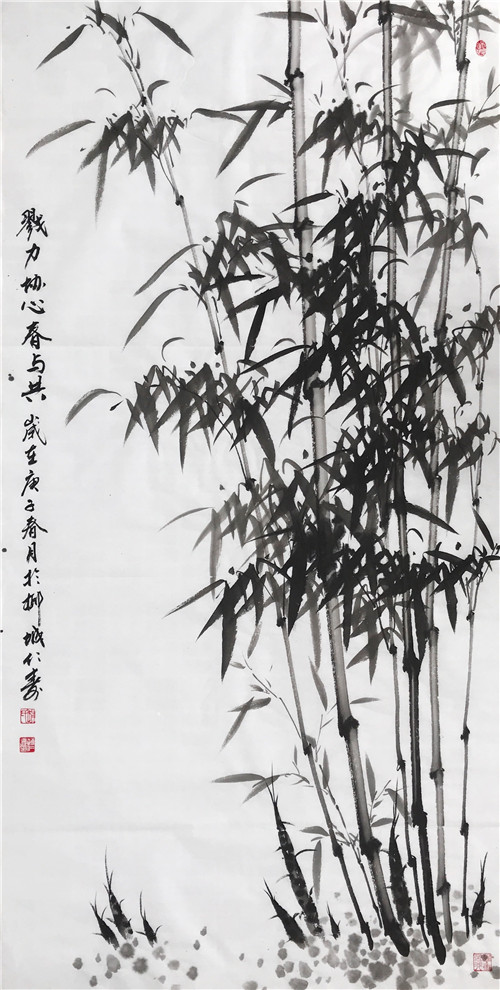 戮力协心春与共 歲在庚子春月於城仁寿